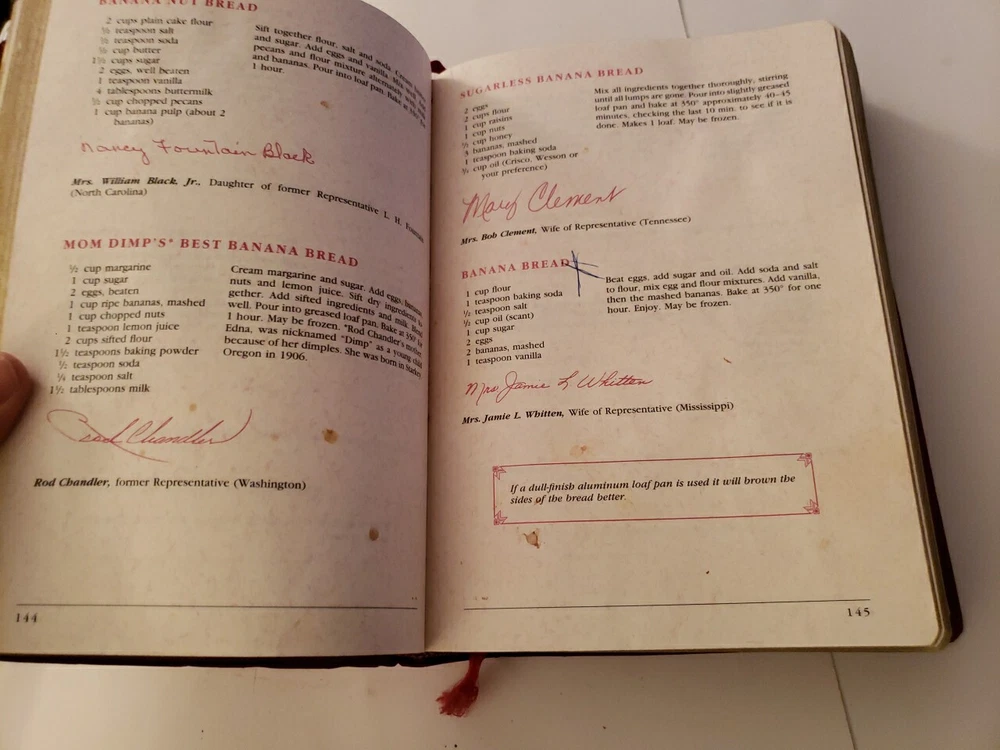 BANANA NUT BREAD
2 cups plain cake flour
½ teaspoon salt
½ teaspoon soda
½ cup butter
1½ cups sugar
2 eggs, well beaten
1 teaspoon vanilla
4 tablespoons buttermilk
½ cup chopped pecans
1 cup banana pulp (about 2
bananas)
Sift together flour, salt and soda. Cream
and sugar. Add eggs and vanilla. Mix well.
pecans and flour mixture alternately with
and bananas. Pour into loaf pan. Bake at 350° for
1 hour.
Nancy Fountain Black
Mrs. William Black, Jr., Daughter of former Representative L. H. Fountain
(North Carolina)
MOM DIMP'S* BEST BANANA BREAD
½ cup margarine
1 cup sugar
2 eggs, beaten
1 cup ripe bananas, mashed
1 cup chopped nuts
1 teaspoon lemon juice
2 cups sifted flour
1½ teaspoons baking powder
½ teaspoon soda
¼ teaspoon salt
1½ tablespoons milk
Cream margarine and sugar. Add eggs, bananas
nuts and lemon juice. Sift dry ingredients to-
gether. Add sifted ingredients and milk. Blend
well. Pour into greased loaf pan. Bake at 350° for
1 hour. May be frozen. *Rod Chandler's mother,
Edna, was nicknamed "Dimp" as a young child
because of her dimples. She was born in
Oregon in 1906.
Rod Chandler
Rod Chandler, former Representative (Washington)
144
SUGARLESS BANANA BREAD
2 eggs
2 cups flour
1 cup raisins
1 cup nuts
cup honey
3 bananas, mashed
1 teaspoon baking soda
cup oil (Crisco, Wesson or
your preference)
Mix all ingredients together thoroughly, stirring
until all lumps are gone. Pour into slightly greased
loaf pan and bake at 350° approximately 40-45
minutes, checking the last 10 min. to see if it is
done. Makes 1 loaf. May be frozen.
Mary Clement
Mrs. Bob Clement, Wife of Representative (Tennessee)
BANANA BREAD
1 cup flour
1 teaspoon baking soda
½ teaspoon salt
½ cup oil (scant)
1 cup sugar
2 eggs
2 bananas, mashed
1 teaspoon vanilla
Beat eggs, add sugar and oil. Add soda and salt
to flour, mix egg and flour mixtures. Add vanilla,
then the mashed bananas. Bake at 350° for one
hour. Enjoy. May be frozen.
Mrs Jamie L Whitten
Mrs. Jamie L. Whitten, Wife of Representative (Mississippi)
If a dull-finish aluminum loaf pan is used it will brown the
sides of the bread better.
145